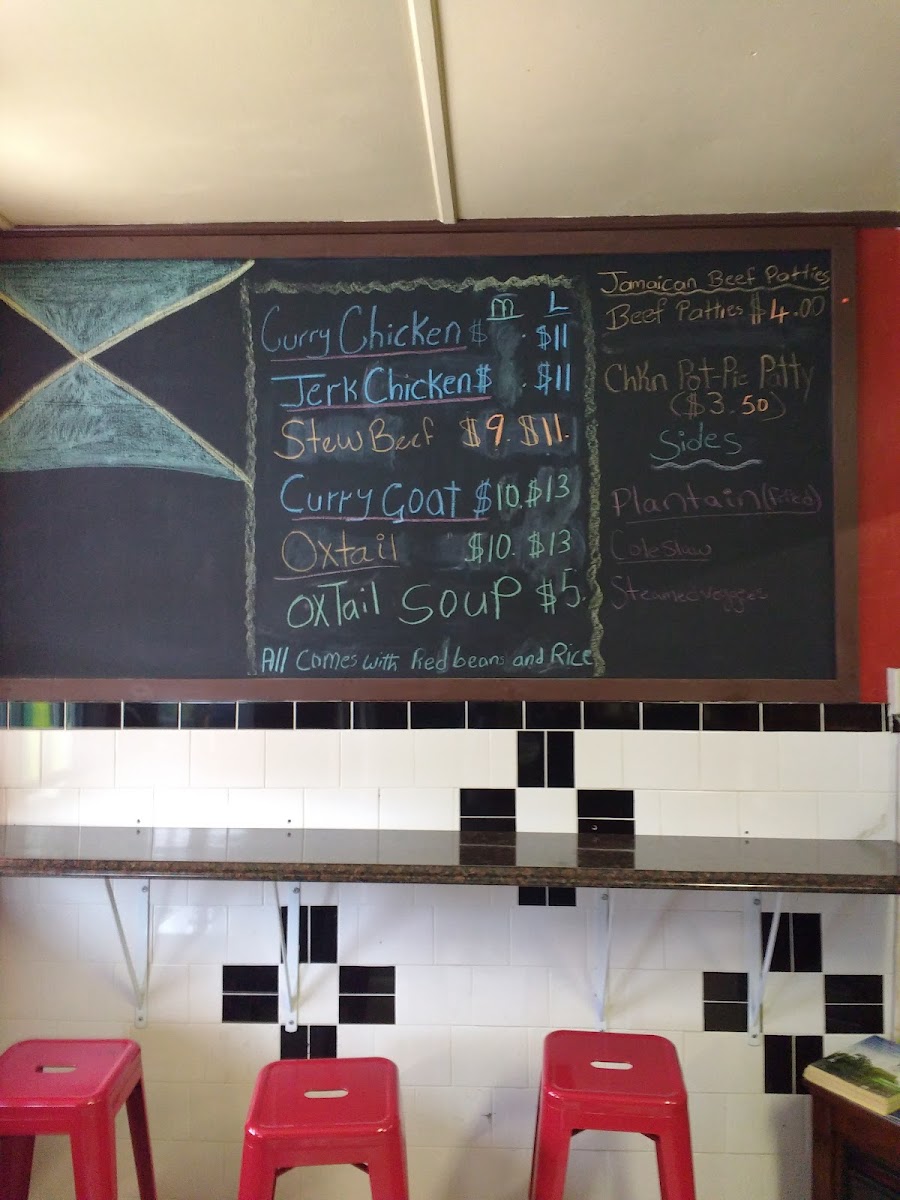 M L
Curry Chicken $ . $11
Jerk Chicken $ . $11
Stew Beef $9. $11.
Curry Goat $10. $13
Oxtail $10. $13
OxTail Soup $5.
All Comes with Red beans and Rice
Jamaican Beef Patties
Beef Patties $4.00
Chkn Pot-Pie Patty
($3.50)
Sides
Plantain (fried)
Coleslaw
Steamed veggies